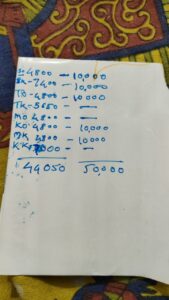 4800 — 10,000
7400 — 10,000
TO - 4800 — 10000
TK - 5650 — —
MO 4800 — —
KO 4800 — 10,000
MK 4800 — 10000
KK 7000 — —
44050 50,000